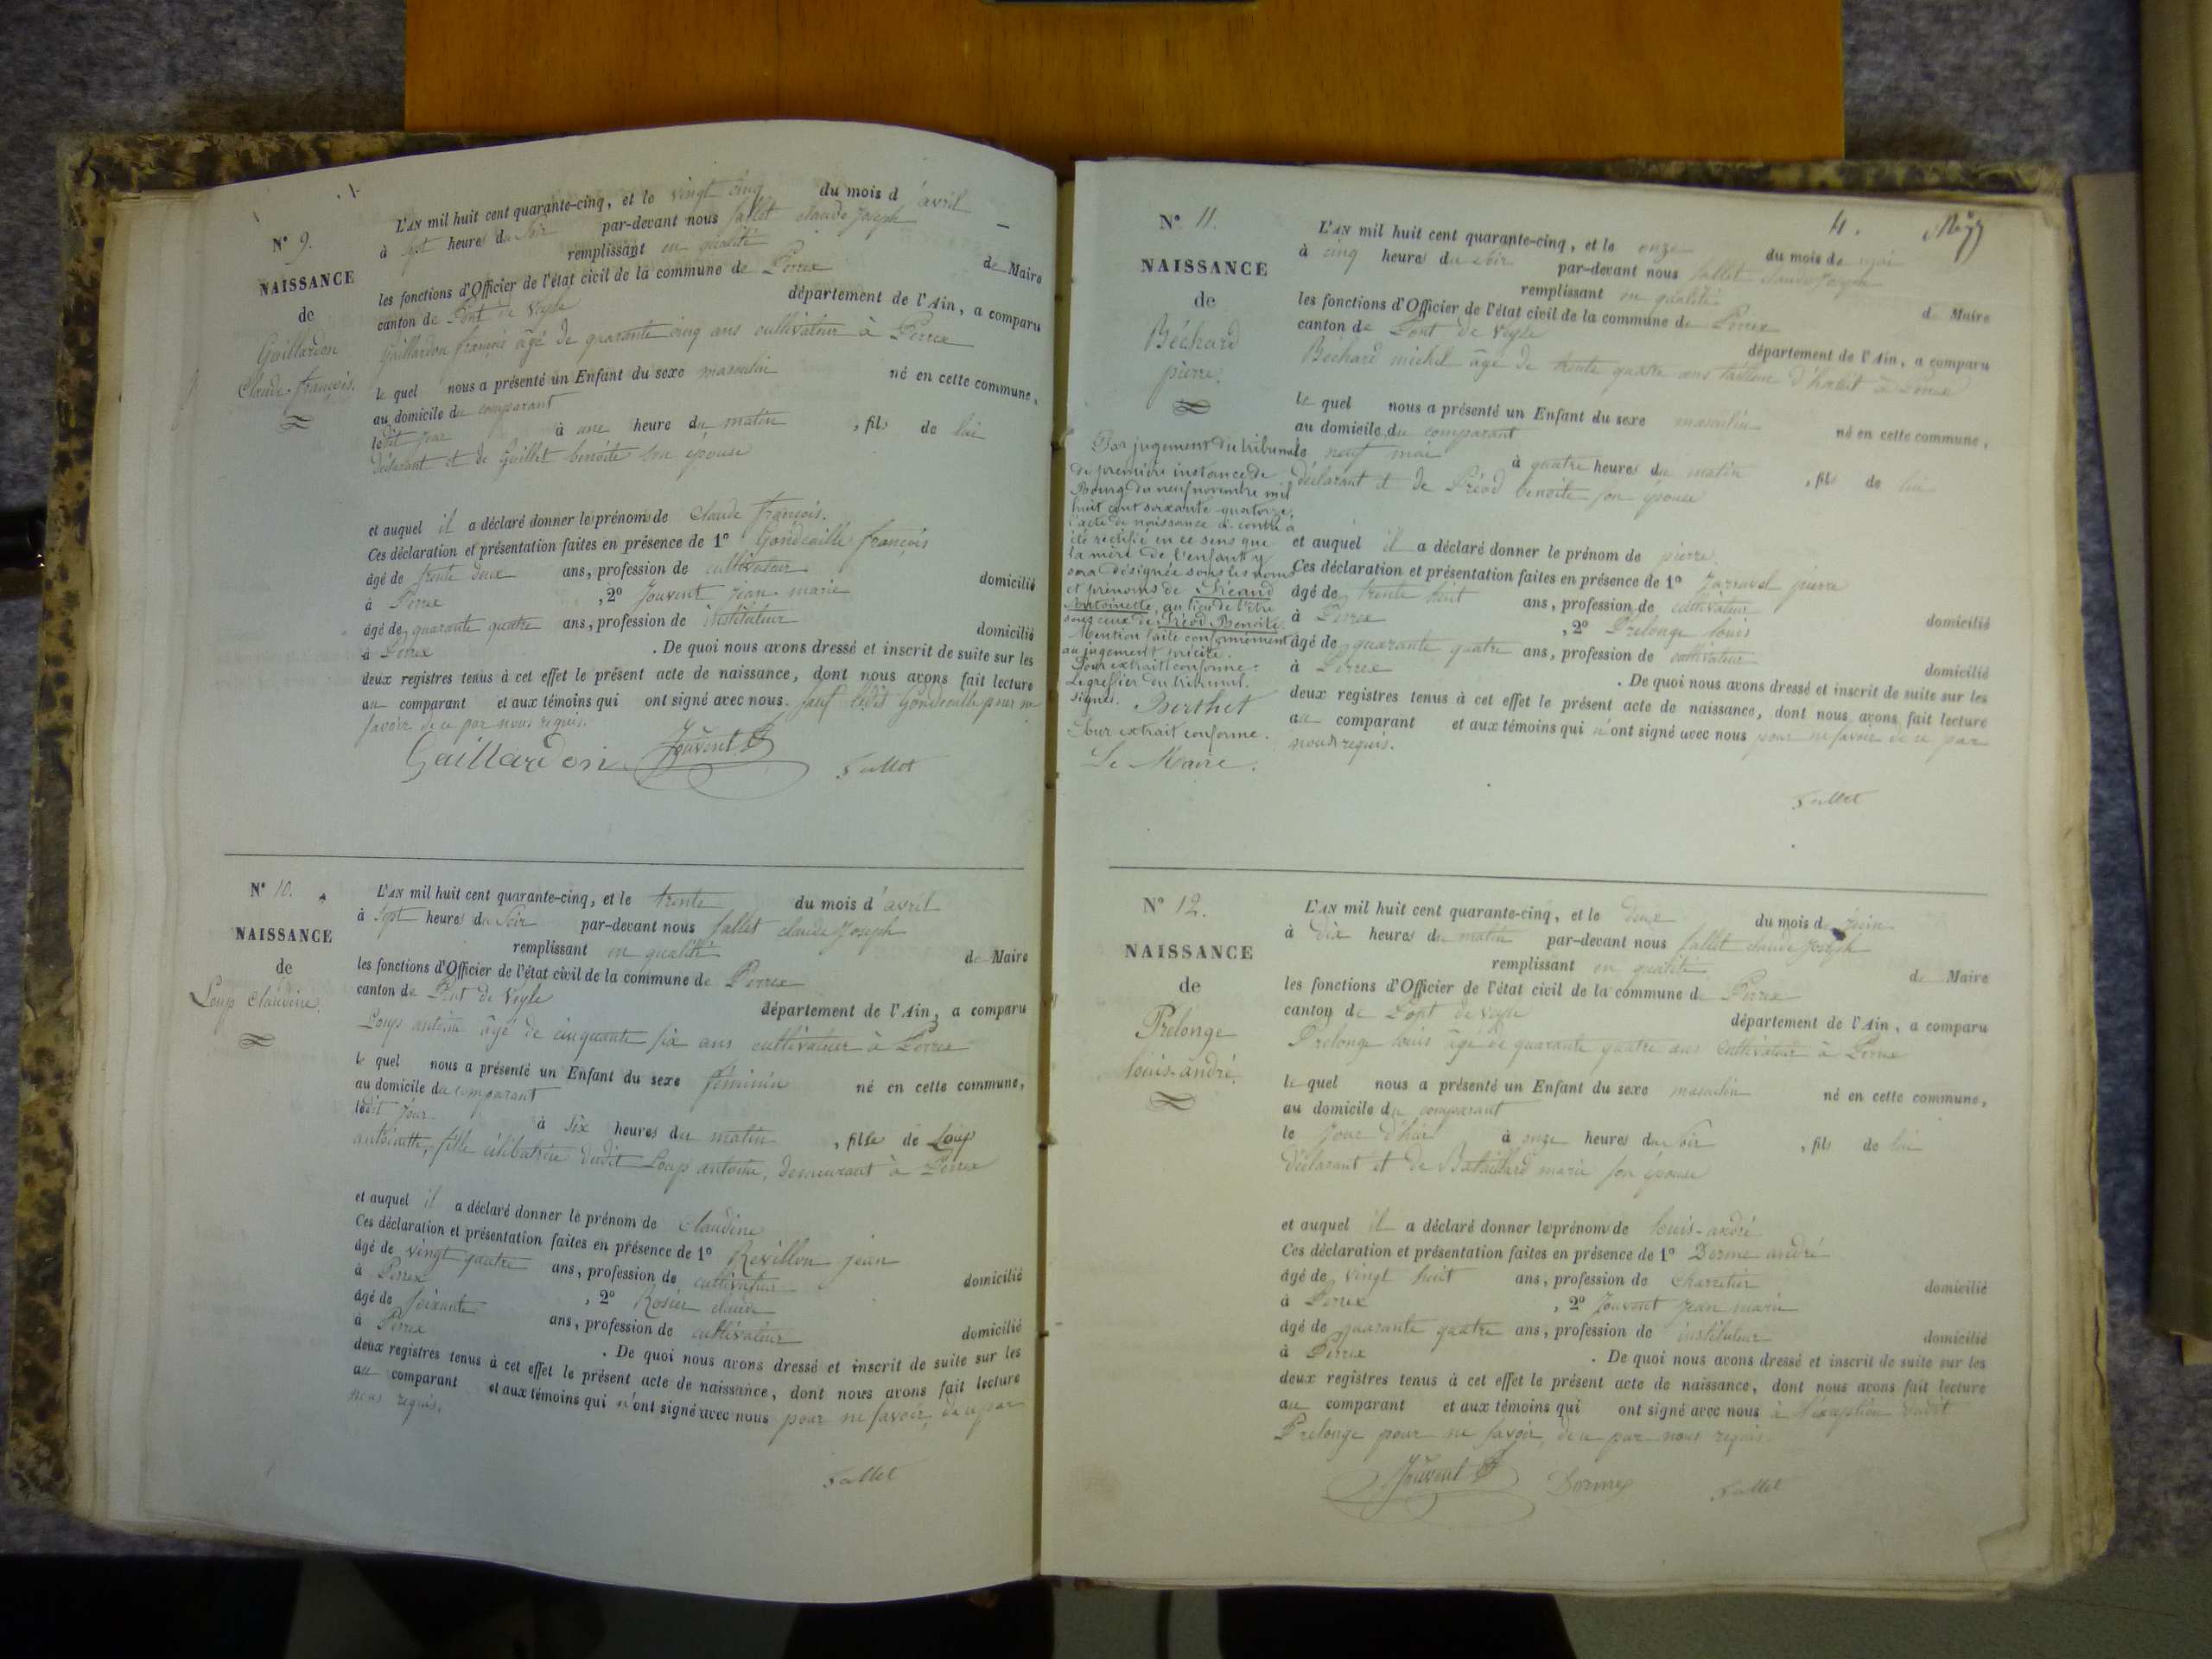 N° 9.
NAISSANCE
de
Gaillardon
Claude-françois.
L'AN mil huit cent quarante-cinq, et le vingt cinq du mois d'avril
à sept heures du soir par-devant nous fallet claude Joseph
remplissant en qualité de Maire
les fonctions d'Officier de l'état civil de la commune de Perrex
canton de Pont de Veyle département de l'Ain, a comparu
Gaillardon françois âgé de quarante cinq ans cultivateur à Perrex
lequel nous a présenté un Enfant du sexe masculin né en cette commune,
au domicile du comparant
ledit jour à une heure du matin, fils de lui
déclarant et de Guillet benoite son épouse
et auquel il a déclaré donner les prénoms de Claude françois.
Ces déclaration et présentation faites en présence de 1° Gondcaille françois
âgé de trente deux ans, profession de cultivateur domicilié
à Perrex, 2° Jouvent jean-marie
âgé de quarante quatre ans, profession de instituteur domicilié
à Perrex. De quoi nous avons dressé et inscrit de suite sur les
deux registres tenus à cet effet le présent acte de naissance, dont nous avons fait lecture
au comparant et aux témoins qui ont signé avec nous. sauf ledit Gondcaille pour ne
savoir de ce par nous requis.
Gaillardon Jouvent fallet
N° 10.
NAISSANCE
de
Loup Claudine.
L'AN mil huit cent quarante-cinq, et le trente du mois d'avril
à sept heures du soir par-devant nous fallet claude Joseph
remplissant en qualité de Maire
les fonctions d'Officier de l'état civil de la commune de Perrex
canton de Pont de Veyle département de l'Ain, a comparu
Loup antoine âgé de cinquante six ans cultivateur à Perrex
lequel nous a présenté un Enfant du sexe féminin né en cette commune,
au domicile du comparant
ledit jour à six heures du matin, fille de Loup
antoinette, fille célibataire dudit Loup antoine, demeurant à Perrex
et auquel il a déclaré donner le prénom de Claudine
Ces déclaration et présentation faites en présence de 1° Revillon jean
âgé de vingt quatre ans, profession de cultivateur domicilié
à Perrex, 2° Rosier claude
âgé de soixante ans, profession de cultivateur domicilié
à Perrex. De quoi nous avons dressé et inscrit de suite sur les
deux registres tenus à cet effet le présent acte de naissance, dont nous avons fait lecture
au comparant et aux témoins qui n'ont signé avec nous pour ne savoir, de ce par
nous requis.
fallet
4.
N° 11.
NAISSANCE
de
Béchard
pierre.
Par jugement du tribunal
de première instance de
Bourg du neuf novembre mil
huit cent soixante-quatorze,
l'acte de naissance ci-contre a
été rectifié en ce sens que
la mère de l'enfant y
sera désignée sous les noms
et prénoms de Préaud
Antoinette, au lieu de l'être
sous ceux de Préod Benoite.
Mention faite conformément
au jugement précité.
Pour extrait conforme:
Le greffier du tribunal,
signé: Berthet
Pour extrait conforme.
Le Maire.
L'AN mil huit cent quarante-cinq, et le onze du mois de mai
à cinq heures du soir par-devant nous fallet claude Joseph
remplissant en qualité de Maire
les fonctions d'Officier de l'état civil de la commune de Perrex
canton de Pont de Veyle département de l'Ain, a comparu
Béchard michel âgé de trente quatre ans tailleur d'habit à Perrex
lequel nous a présenté un Enfant du sexe masculin né en cette commune,
au domicile du comparant
le neuf mai à quatre heures du matin, fils de lui
déclarant et de Préod benoite son épouse
et auquel il a déclaré donner le prénom de pierre.
Ces déclaration et présentation faites en présence de 1° Jarravel pierre
âgé de trente huit ans, profession de cultivateur domicilié
à Perrex, 2° Prelonge louis
âgé de quarante quatre ans, profession de cultivateur domicilié
à Perrex. De quoi nous avons dressé et inscrit de suite sur les
deux registres tenus à cet effet le présent acte de naissance, dont nous avons fait lecture
au comparant et aux témoins qui n'ont signé avec nous pour ne savoir de ce par
nous requis.
fallet
N° 12.
NAISSANCE
de
Prelonge
louis-andré.
L'AN mil huit cent quarante-cinq, et le deux du mois de juin
à dix heures du matin par-devant nous fallet claude Joseph
remplissant en qualité de Maire
les fonctions d'Officier de l'état civil de la commune de Perrex
canton de Pont de Veyle département de l'Ain, a comparu
Prelonge louis âgé de quarante quatre ans cultivateur à Perrex
lequel nous a présenté un Enfant du sexe masculin né en cette commune,
au domicile du comparant
le jour d'hier à onze heures du soir, fils de lui
déclarant et de Bataillard marie son épouse
et auquel il a déclaré donner les prénoms de louis-andré
Ces déclaration et présentation faites en présence de 1° Dorme andré
âgé de vingt huit ans, profession de charretier domicilié
à Perrex, 2° Jouvent jean marie
âgé de quarante quatre ans, profession de instituteur domicilié
à Perrex. De quoi nous avons dressé et inscrit de suite sur les
deux registres tenus à cet effet le présent acte de naissance, dont nous avons fait lecture
au comparant et aux témoins qui ont signé avec nous à l'exception dudit
Prelonge pour ne savoir, de ce par nous requis.
Jouvent Dorme fallet